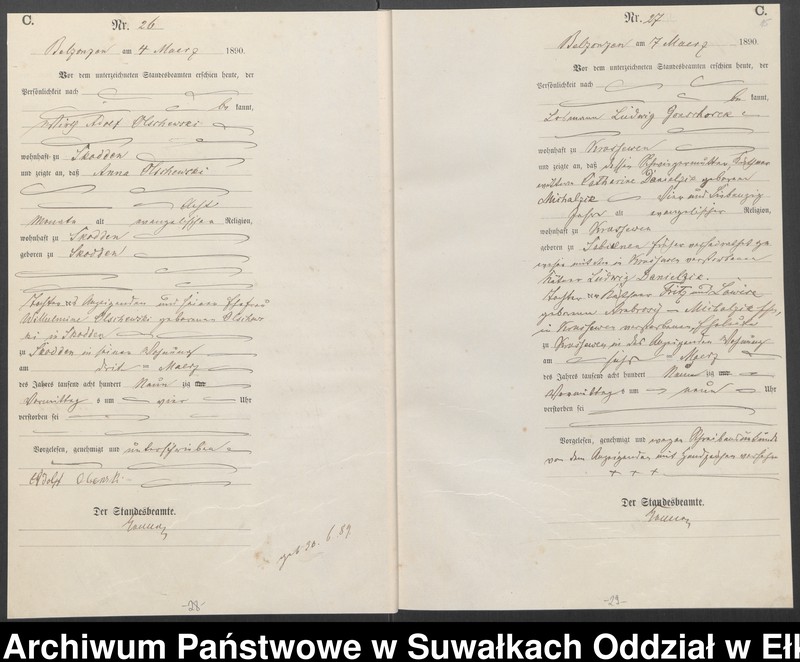 C.
Nr. 26
Belzonzen am 4 Maerz 1890.
Vor dem unterzeichneten Standesbeamten erschien heute, der
Persönlichkeit nach
be kannt,
Wirth Adolf Olschewski
wohnhaft zu Skodden
und zeigte an, daß Anna Olschewski
acht
Monate alt evangelischen Religion,
wohnhaft zu Skodden
geboren zu Skodden
Tochter des Anzeigenden und seiner Ehefrau
Wilhelmine Olschewski geborenen Olschew
ski in Skodden
zu Skodden in seiner Wohnung
am drit ten Maerz
des Jahres tausend acht hundert Neun zig
Vormittag s um vier Uhr
verstorben sei
Vorgelesen, genehmigt und unterschrieben
Adolf
Der Standesbeamte.
geb 30. 6. 89
-28-
C.
Nr. 27
Belzonzen am 7 Maerz 1890.
Vor dem unterzeichneten Standesbeamten erschien heute, der
Persönlichkeit nach
be kannt,
Losmann Ludwig
wohnhaft zu Krassewen
und zeigte an, daß dessen Schwiegermutter, Käthner
wittwe Catharine Danielzik geborene
Michalzik vier und siebenzig
Jahr alt evangelischer Religion,
wohnhaft zu Krassewen
geboren zu früher verheirathet ge
wesen mit dem in Krassewen verstorbenen
Käthner Ludwig Danielzik.
Tochter der Fritz und Lowise
geborenen Michalzik
in Krassewen verstorbenen Eheleute
zu Krassewen in des Anzeigenden Wohnung
am ten Maerz
des Jahres tausend acht hundert Neun zig
Vormittag s um neun Uhr
verstorben sei
Vorgelesen, genehmigt und wegen Schreibensunkunde
von dem Anzeigenden mit Handzeichen versehen
+ + +
Der Standesbeamte.
-29-
Archiwum Państwowe w Suwałkach Oddział w Ełk